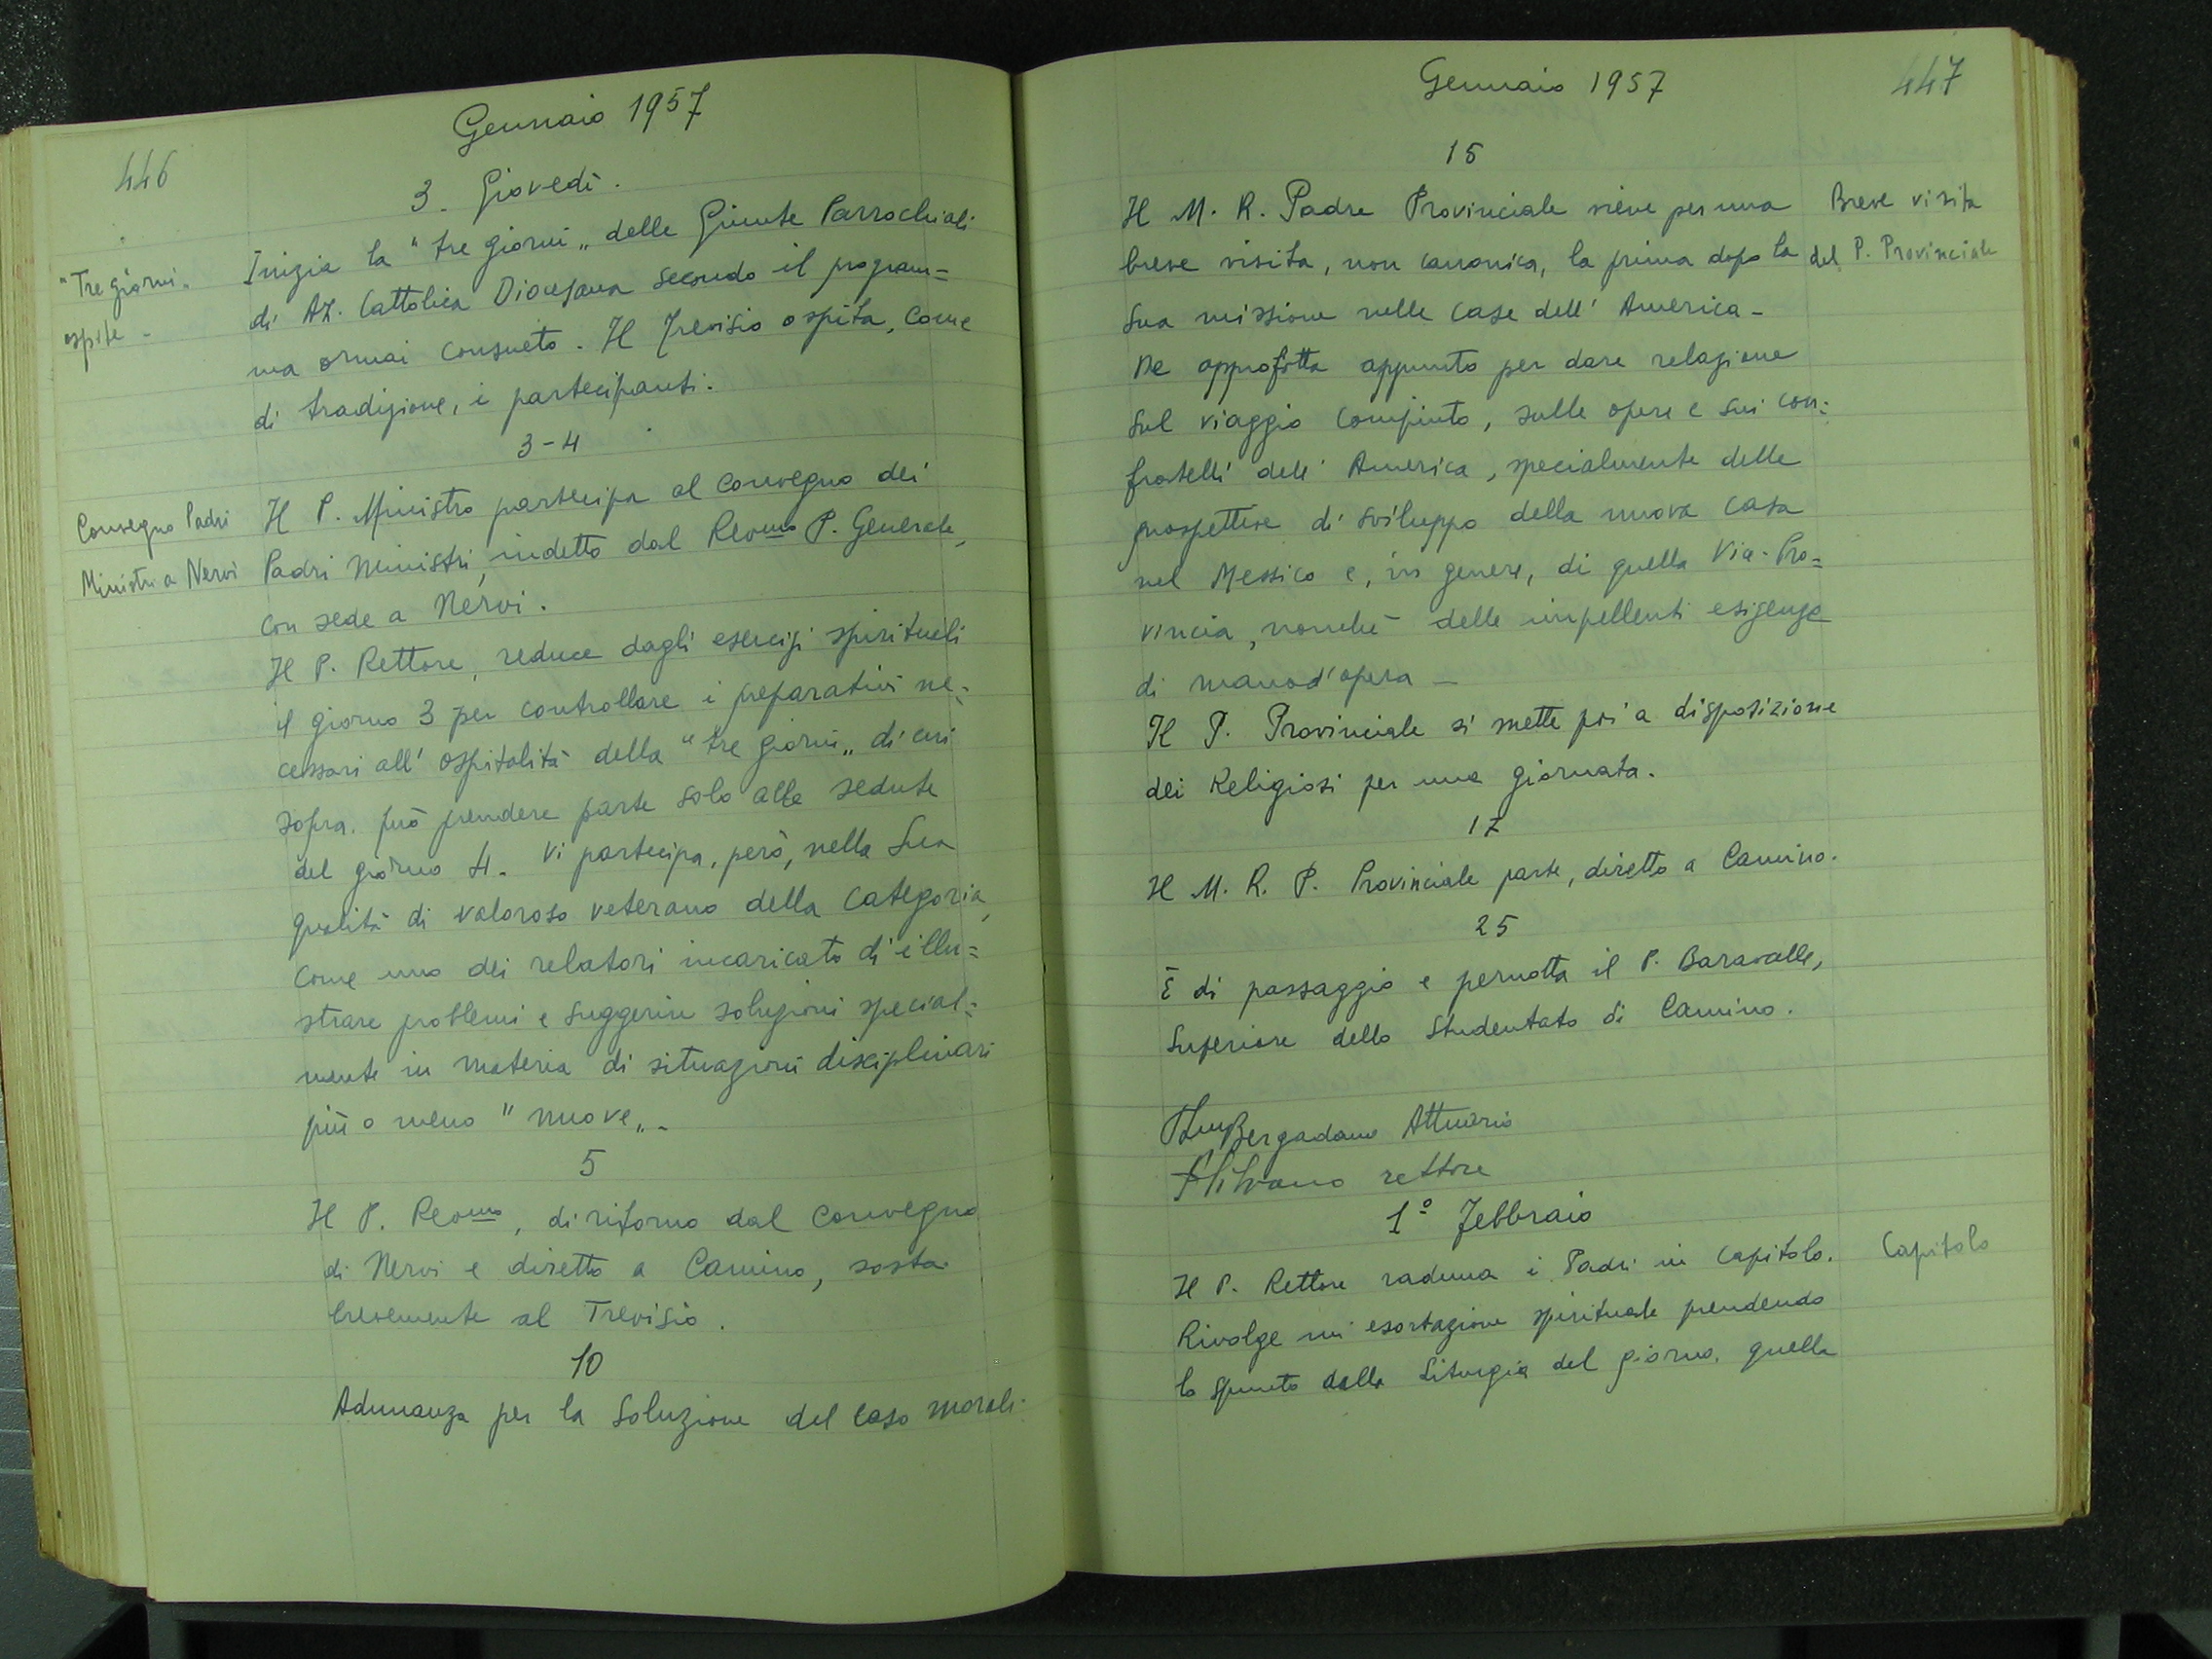 446
Gennaio 1957
3. Giovedì.
"Tre giorni"
ospite -
Inizia la "tre giorni" delle Giunte Parrocchiali
di Az. Cattolica Diocesana secondo il program=
ma ormai consueto. Il Trevisio ospita, come
di tradizione, i partecipanti.
3-4
Convegno Padri
Ministri a Nervi
Il P. Ministro partecipa al convegno dei
Padri Ministri, indetto dal Revmo P. Generale,
con sede a Nervi.
Il P. Rettore, reduce dagli esercizi spirituali
il giorno 3 per controllare i preparativi ne=
cessari all'ospitalità della "tre giorni" di cui
sopra, può prendere parte solo alle sedute
del giorno 4. Vi partecipa, però, nella Sua
qualità di valoroso veterano della categoria,
come uno dei relatori incaricato di illu=
strare problemi e suggerire soluzioni special=
mente in materia di situazioni disciplinari
più o meno "nuove" -
5
Il P. Revmo, di ritorno dal Convegno
di Nervi e diretto a Camino, sosta
brevemente al Trevisio.
10
Adunanza per la Soluzione del caso morali.
Gennaio 1957
447
15
Il M. R. Padre Provinciale viene per una
breve visita, non canonica, la prima dopo la
Sua missione nelle case dell'America -
Breve visita
del P. Provinciale
Ne approfitta appunto per dare relazione
sul viaggio compiuto, sulle opere e sui con=
fratelli dell'America, specialmente delle
prospettive di sviluppo della nuova casa
nel Messico e, in genere, di quella Vice-Pro=
vincia, nonchè delle impellenti esigenze
di manod'opera -
Il P. Provinciale si mette poi a disposizione
dei Religiosi per una giornata.
17
Il M. R. P. Provinciale parte, diretto a Camino.
25
È di passaggio e pernotta il P. Baravalle,
Superiore dello Studentato di Camino.
Bergadano Attuario
rettore
1° Febbraio
Capitolo
Il P. Rettore raduna i Padri in Capitolo.
Rivolge un' esortazione spirituale prendendo
lo spunto dalla Liturgia del giorno, quella